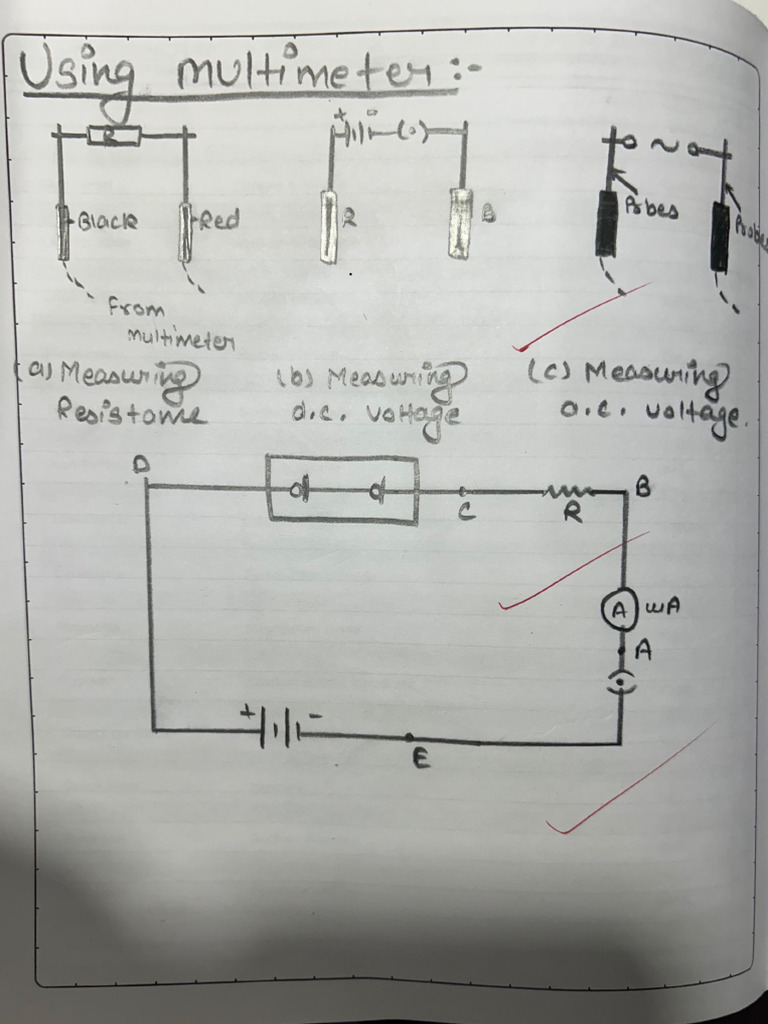 Using multimeter :-
R
+ -
Black
Red
R
B
Probes
From
multimeter
(a) Measuring
Resistance
(b) Measuring
d.c. voltage
(c) Measuring
a.c. voltage.
D
C
R
B
A
A
+ -
E